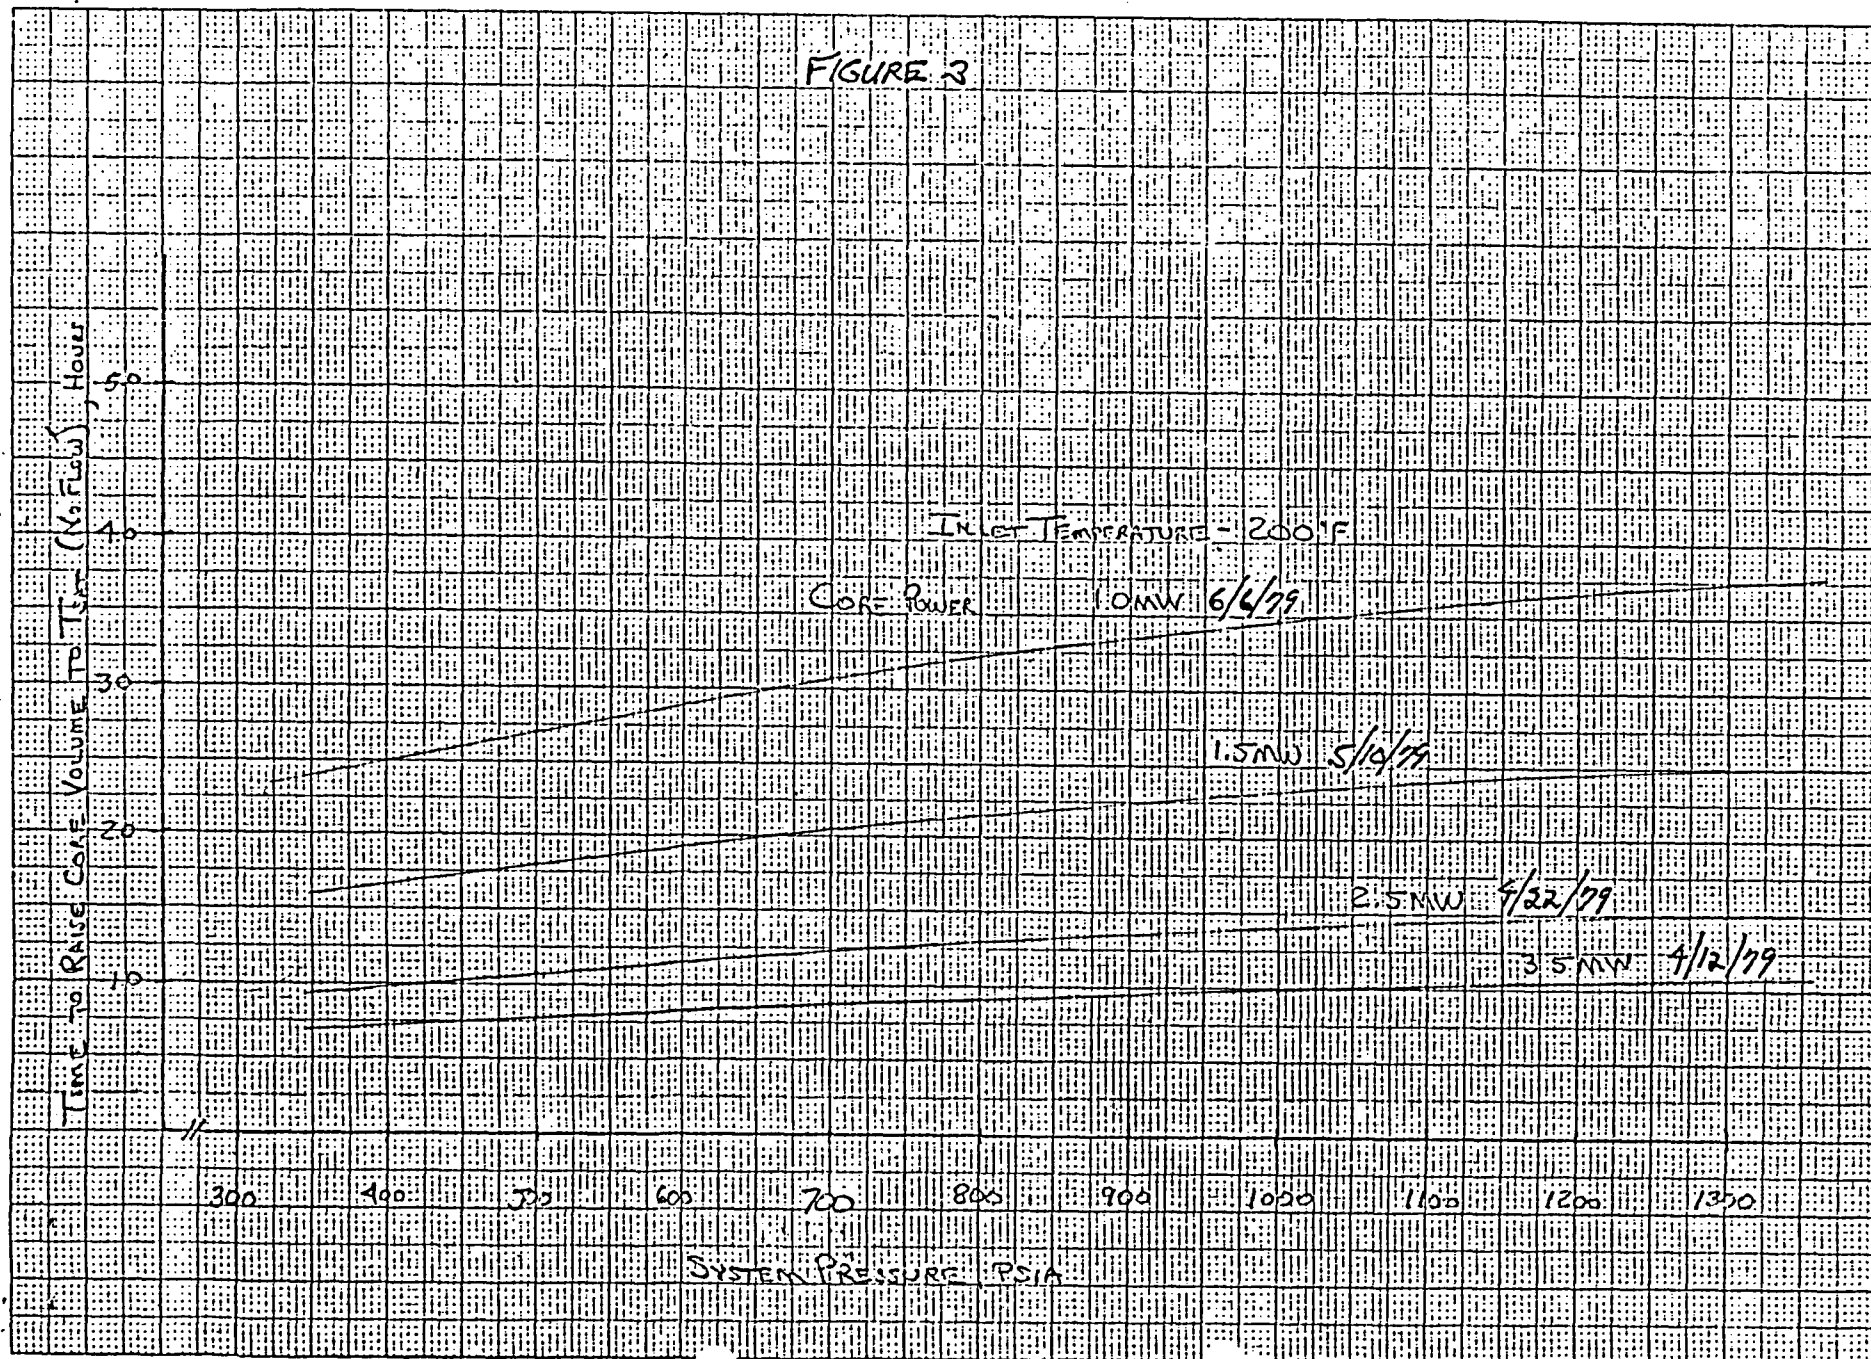 FIGURE 3
TIME TO RAISE CORE VOLUME TO TSAT (NO FLOW), HOURS
50
40
30
20
10
INLET TEMPERATURE - 200°F
CORE POWER 1.0MW 6/6/79
1.5MW 5/10/79
2.5MW 4/22/79
3.5MW 4/12/79
300 400 500 600 700 800 900 1000 1100 1200 1300
SYSTEM PRESSURE, PSIA